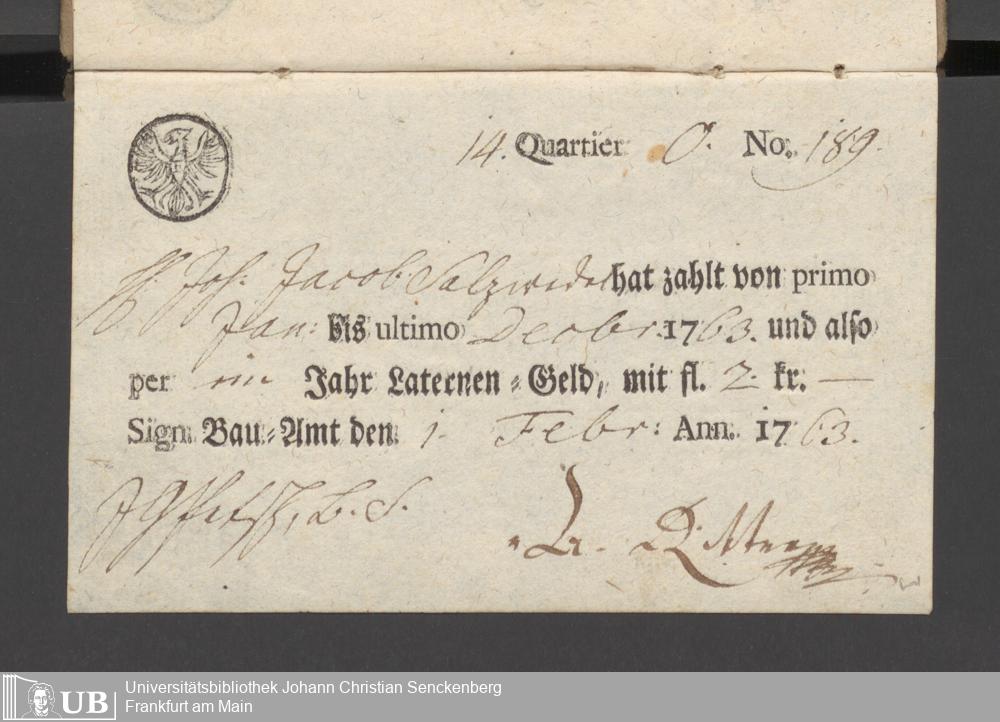 14. Quartier O. No. 189.
H. Joh: Jacob Salzwedel hat zahlt von primo
Jan: bis ultimo Decbr. 1763. und also
per ein Jahr Laternen-Geld, mit fl. 2. kr. —
Sign. Bau-Amt den 1. Febr: Ann. 1763.
B. S.
UB Universitätsbibliothek Johann Christian Senckenberg
Frankfurt am Main